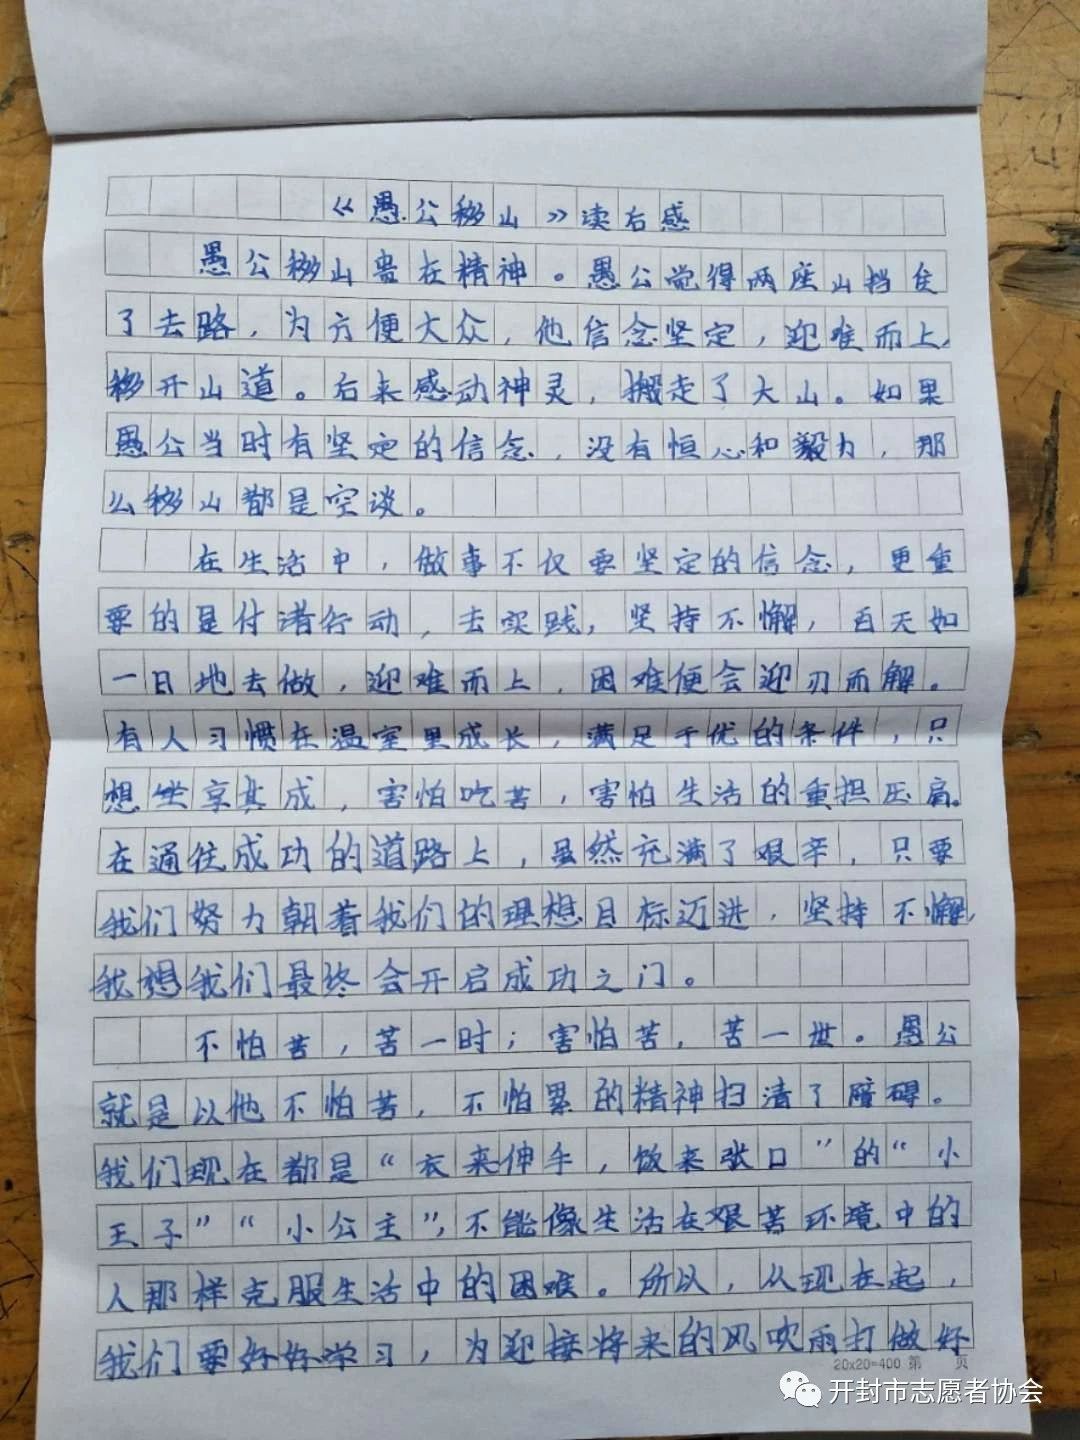 《愚公移山》读右感
愚公移山贵在精神。愚公觉得两座山挡住
了去路，为方便大众，他信念坚定，迎难而上，
移开山道。后来感动神灵，搬走了大山。如果
愚公当时有坚定的信念，没有恒心和毅力，那
么移山都是空谈。
在生活中，做事不仅要坚定的信念，更重
要的是付诸行动，去实践，坚持不懈，百天如
一日地去做，迎难而上，困难便会迎刃而解。
有人习惯在温室里成长，满足于优的条件，只
想坐享其成，害怕吃苦，害怕生活的重担压肩。
在通往成功的道路上，虽然充满了艰辛，只要
我们努力朝着我们的理想目标迈进，坚持不懈，
我想我们最终会开启成功之门。
不怕苦，苦一时；害怕苦，苦一世。愚公
就是以他不怕苦，不怕累的精神扫清了障碍。
我们现在都是“衣来伸手，饭来张口”的“小
王子”“小公主”，不能像生活在艰苦环境中的
人那样克服生活中的困难。所以，从现在起，
我们要好好学习，为迎接将来的风吹雨打做好
20×20=400 第 页
开封市志愿者协会